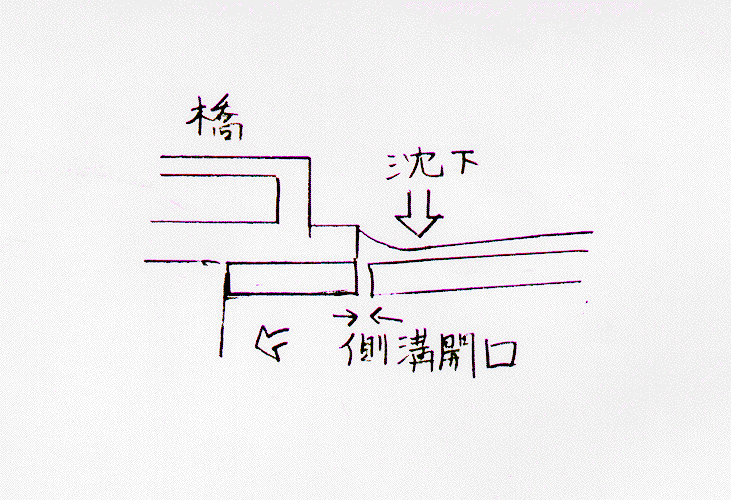 橋
沈下
側溝開口